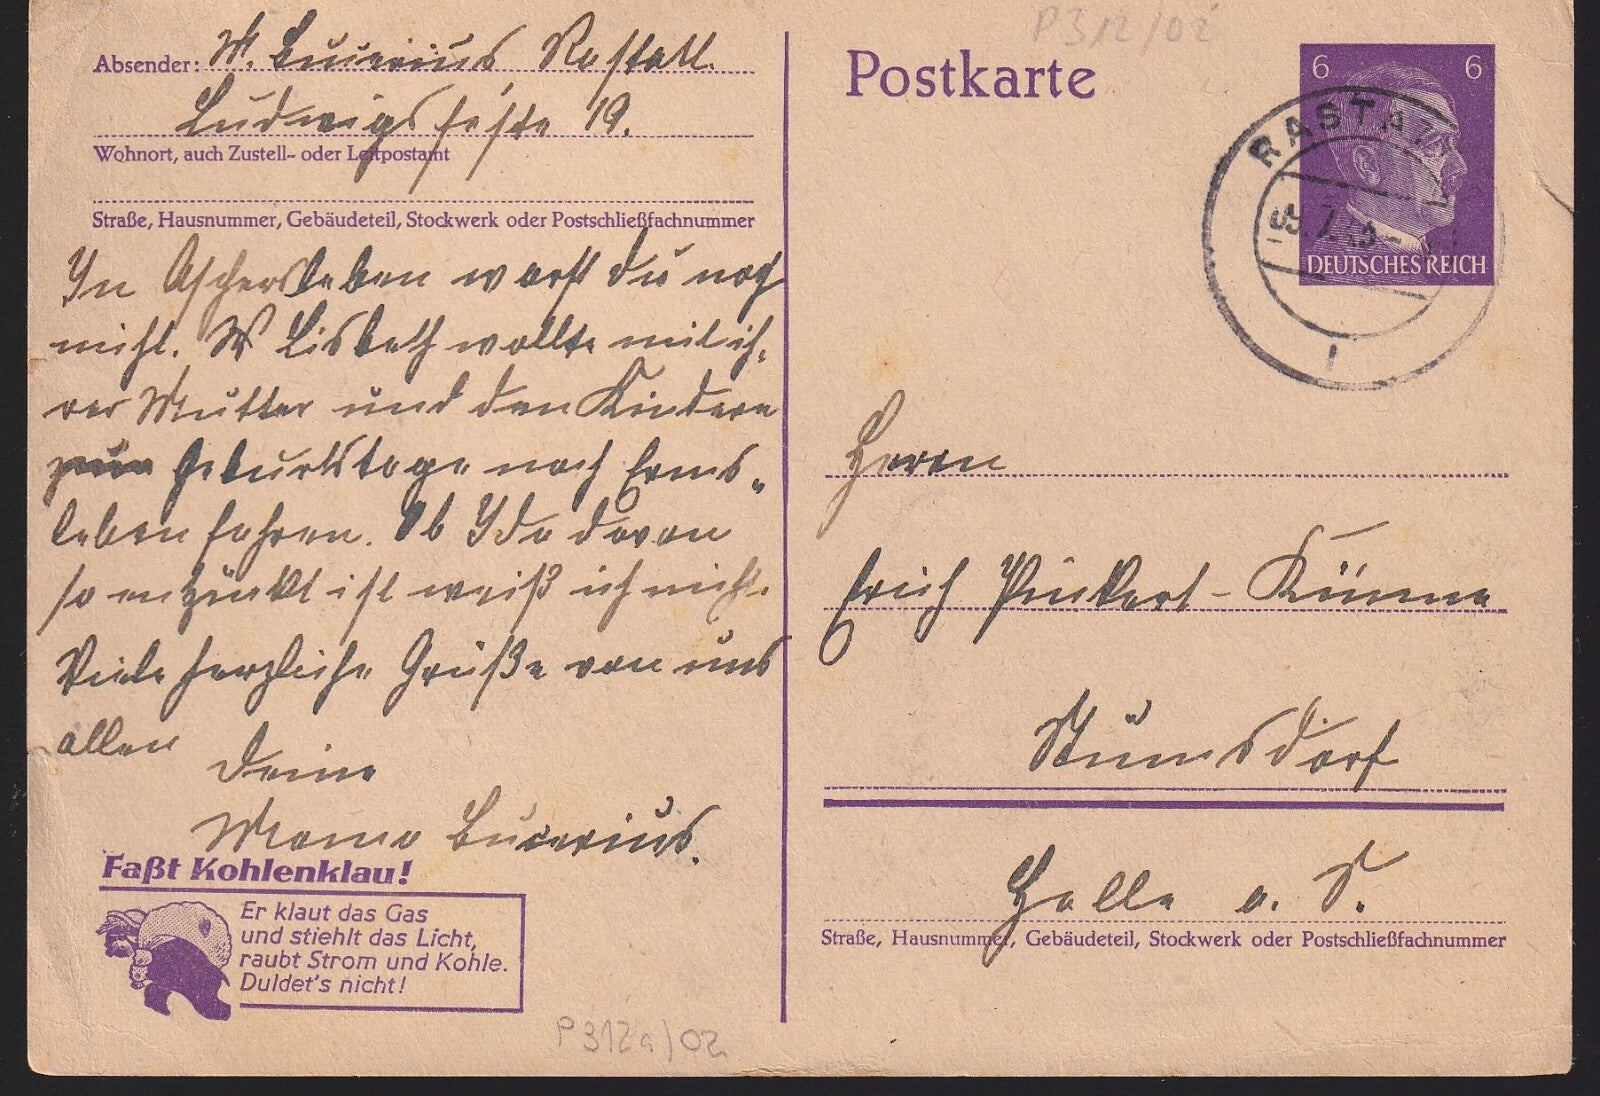 P 312/02
Absender: M. Lucerius Rastatt.
Ludwigsfeste 19.
Wohnort, auch Zustell- oder Leitpostamt
Straße, Hausnummer, Gebäudeteil, Stockwerk oder Postschließfachnummer
In Aschersleben warst du noch
nicht. W Lisbeth wollte mit ih-
rer Mutter und den Kindern
zum Geburtstage nach Erms-
leben fahren. Ob Ida davon
so entzückt ist weiß ich nicht.
Viele herzliche Grüße von uns
allen
Deine
Mama Lucerius.
Faßt Kohlenklau!
Er klaut das Gas
und stiehlt das Licht,
raubt Strom und Kohle.
Duldet's nicht!
P 312a/02
Postkarte
6 6
DEUTSCHES REICH
RASTATT
9.7.43
1
Herrn
Erich Pinkert-Künne
Stumsdorf
Halle a. S.
Straße, Hausnummer, Gebäudeteil, Stockwerk oder Postschließfachnummer